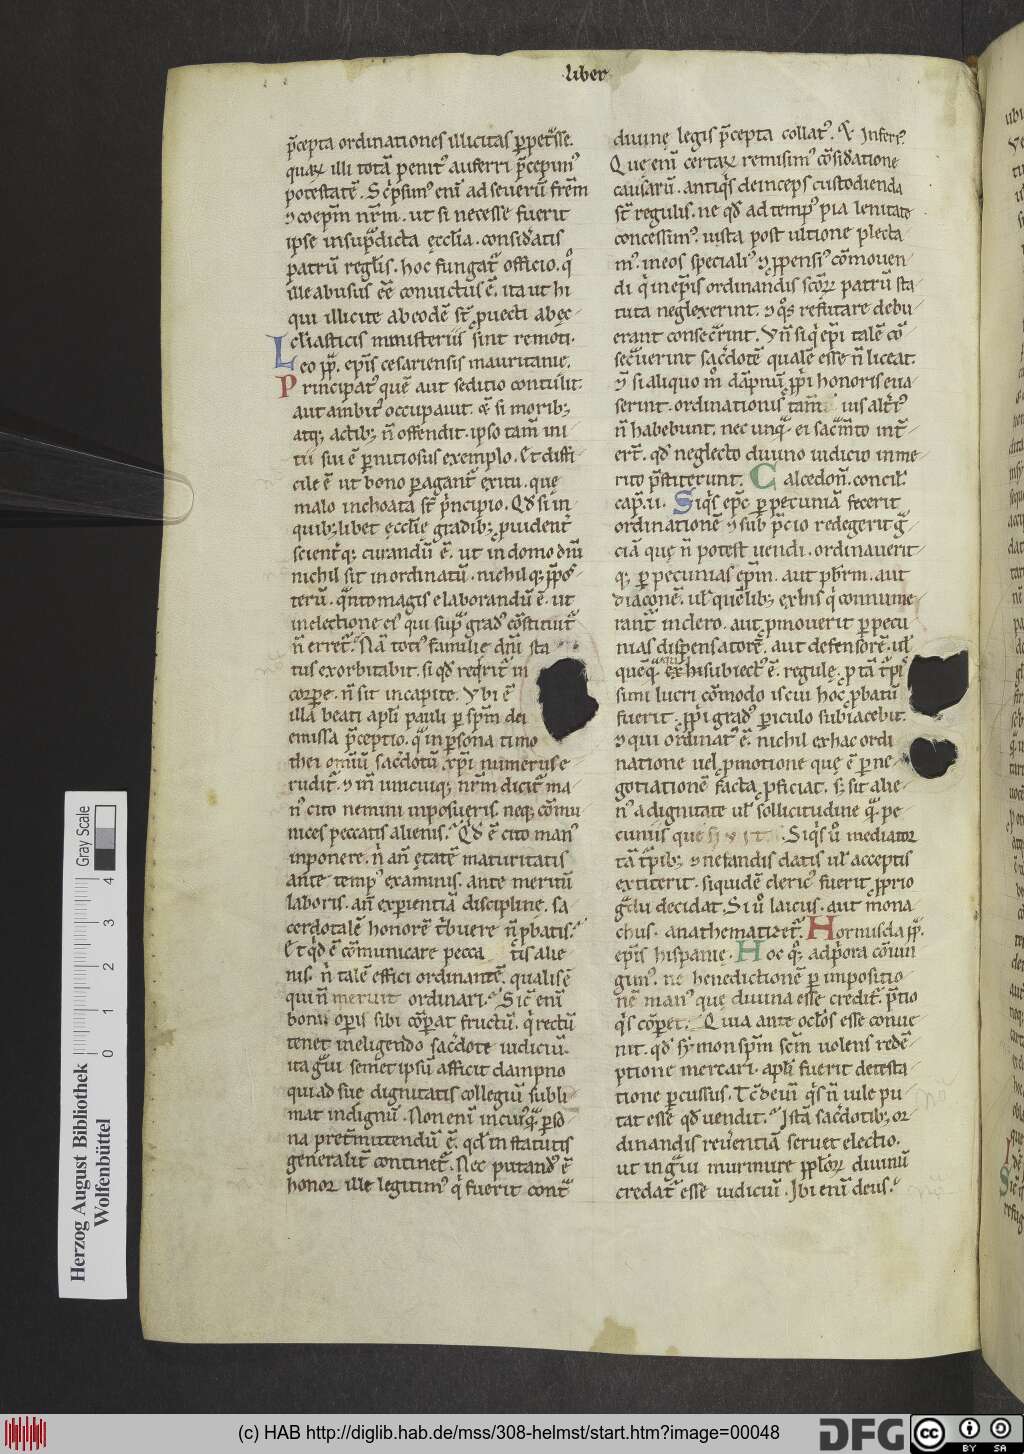 liber
p̄cepta ordinationes illicitas ꝑpet̄sse.
quaꝝ illi totā penit᷒ auferri p̄cepim᷒
potestatē. Sc̄psim᷒ eni᷒ ad seuerū fr̄em
⁊ coepm̄ nr̄m. ut si necesse fuerit
ipse insup̄dicta ęcclīa. consid̄atis
patrū regł̄is. hoc fungat᷒ officio. qͦ
ille abusus eē conuictus ē. ita ut hi
qui illicite ab eodē st̄ ꝓuecti ab ęc-
cłiasticis ministeriis sint remoti.
Leo pp̄. ep̄is cesariensis mauritanie.
Principat᷒ quē aut seditio contulit.
aut ambit᷒ occupauit. & si morib;
atq; actib; n̄ offendit. ipso tam̄ ini
tii sui ē ꝑnitiosus exemplo. Et diffi-
cile ē ut bono ꝑagant᷒ exitu. que
malo inchoata st̄ p̄ncipio. Qd̄ si in
quib;libet ęccłie gradib; ꝓuident᷒
scient᷒q; curandū ē. ut in domo dn̄i
nichil sit inordinatū. nichil q; pp̄os-
terū. q̄nto magis elaborandū ē. ut
in electione ei᷒ qui sup̄ grad᷒ cōstituit᷒
n̄ erret᷒. Nā toti᷒ familie dn̄i sta
tus exorbitabit. si qd̄ reqͥrit᷒ in
corpe. n̄ sit in capite. Vbi ē
illa beati apl̄i pauli ꝑ spm̄ dei
emissa p̄ceptio. q̄ in ꝑsona timo
thei omniū sac̄dotū xp̄i numerus e-
rudit᷒. ⁊ in unicuiq; nr̄m dicit᷒ ma-
n᷒ cito nemini inposueris. neq; cōmu
nices peccatis alienis. Qd̄ ē cito man᷒
inponere. n̄ an̄ ętatē maturitatis
ante temp᷒ examinis. ante meritū
laboris. an̄ exꝑientiā discipline. sa-
cerdotalē honorē t̄buere n̄ ꝓbatis.
Et qͥd ē cōmunicare pecca tis alie
nis. n̄ talē effici ordinantē. qualis ē
qui n̄ meruit ordinari. Sic᷒ eni᷒
boni oꝑis sibi cōꝑat fructū. qͥ rectū
tenet in eligendo sac̄dote iudiciū.
ita g̃ui semet ipsū afficit dampno
qui ad sue dignitatis collegiū subli-
mat indignū. Non eni᷒ in cui᷒q̃ ꝑso-
na pret̄mittendū ē. qd̄ in statutis
generalit᷒ continet᷒. Nec putand᷒ ē
honor ille legitim᷒ qͥ fuerit cont̃
diuinę legis p̄cepta collat᷒. Infer᷒.
Que eni᷒ certaꝝ remisim᷒ cōsid̄atione
causarū. antiqͥs deinceps custodienda
st̄ regulis. ne qd̄ ad temp᷒ pia lenitate
concessim᷒. iusta post ultione plecta
m᷒. in eos speciali᷒ ⁊ ꝓpensi᷒ cōmouen-
di qͥ in ep̄is ordinandis scōꝝ patrū sta-
tuta neglexerint. ⁊ qͦs refutare debu-
erant consec̄rint. Vn̄ si qͥ ep̄i talē cō-
sec̄uerint sac̄dotē qualē esse n̄ liceat.
⁊ si aliquo m͞o dāpnū ꝓpͥi honoris eua-
serint. ordinationis tam̄ ius alt͞i᷒
n̄ habebunt. nec unq̄ ei sac̄mto int̄-
er᷒t. qd̄ neglecto diuino iudicio inme-
rito p̄stiterunt. Calcedon̄. concil̄.
cap̄. ii. Siqͥs ep̄c ꝑ pecuniā fecerit
ordinationē ⁊ sub p̄cio redegerit g̃-
ciā quę n̄ potest uendi. ordinauerit-
q; ꝑ pecunias ep̄m. aut pbr̄m. aut
diaconē. ul̄ quēlib; ex his qͥ connume-
rant᷒ in clero. aut ꝓmouerit ꝑ pecu
nias dispensatorē. aut defensorē. ul̄
quēq̄ ex his subiect᷒ ē. regulę. ꝓ tā t᷒pi
simi lucri cōmodo is cui hoc ꝓbatū
fuerit. ꝓpͥi grad᷒ ꝑiculo subiacebit.
⁊ qui ordinat᷒ ē. nichil ex hac ordi
natione uel ꝓmotione quę ē ꝑ ne-
gotiationē facta ꝓficiat. s; sit alie-
n᷒ a dignitate ul̄ sollicitudine q̄ pe-
cuniis que siuit. Siqͥs u͞o mediator
tā t᷒pib; ⁊ nefandis datis ul̄ acceptis
extiterit. siquidē cleric᷒ fuerit ꝓprio
g̃du decidat. Si u͞o laicus. aut mōna
chus. anathematizet᷒. Hormisda pp̄.
ep̄is hispanie. Hoc q;᷒ ad p̄ora cōiun
gim᷒. ne benedictionē ꝑ impositio-
nē man᷒ que diuina esse credit᷒. p̄tio
qͥs cōꝑet. Quia ante oclōs esse conue
nit. qd̄ symon spm̄ scm̄ uolens redē-
ptione mercari. apl̄i fuerit detesta-
tione ꝑcussus. Tc̄ deiū qͥs n̄ uile pu-
tat esse qd̄ uendit. Istā sac̄dotib; or-
dinandis reu᷒entiā seruet electio.
ut in g̃ui murmure ppl̄oꝝ diuinū
credat᷒ esse iudiciū. Ibi eni᷒ deus.
Herzog August Bibliothek
Wolfenbüttel
Gray Scale
0 1 2 3 4
(c) HAB http://diglib.hab.de/mss/308-helmst/start.htm?image=00048
DFG
cc BY SA